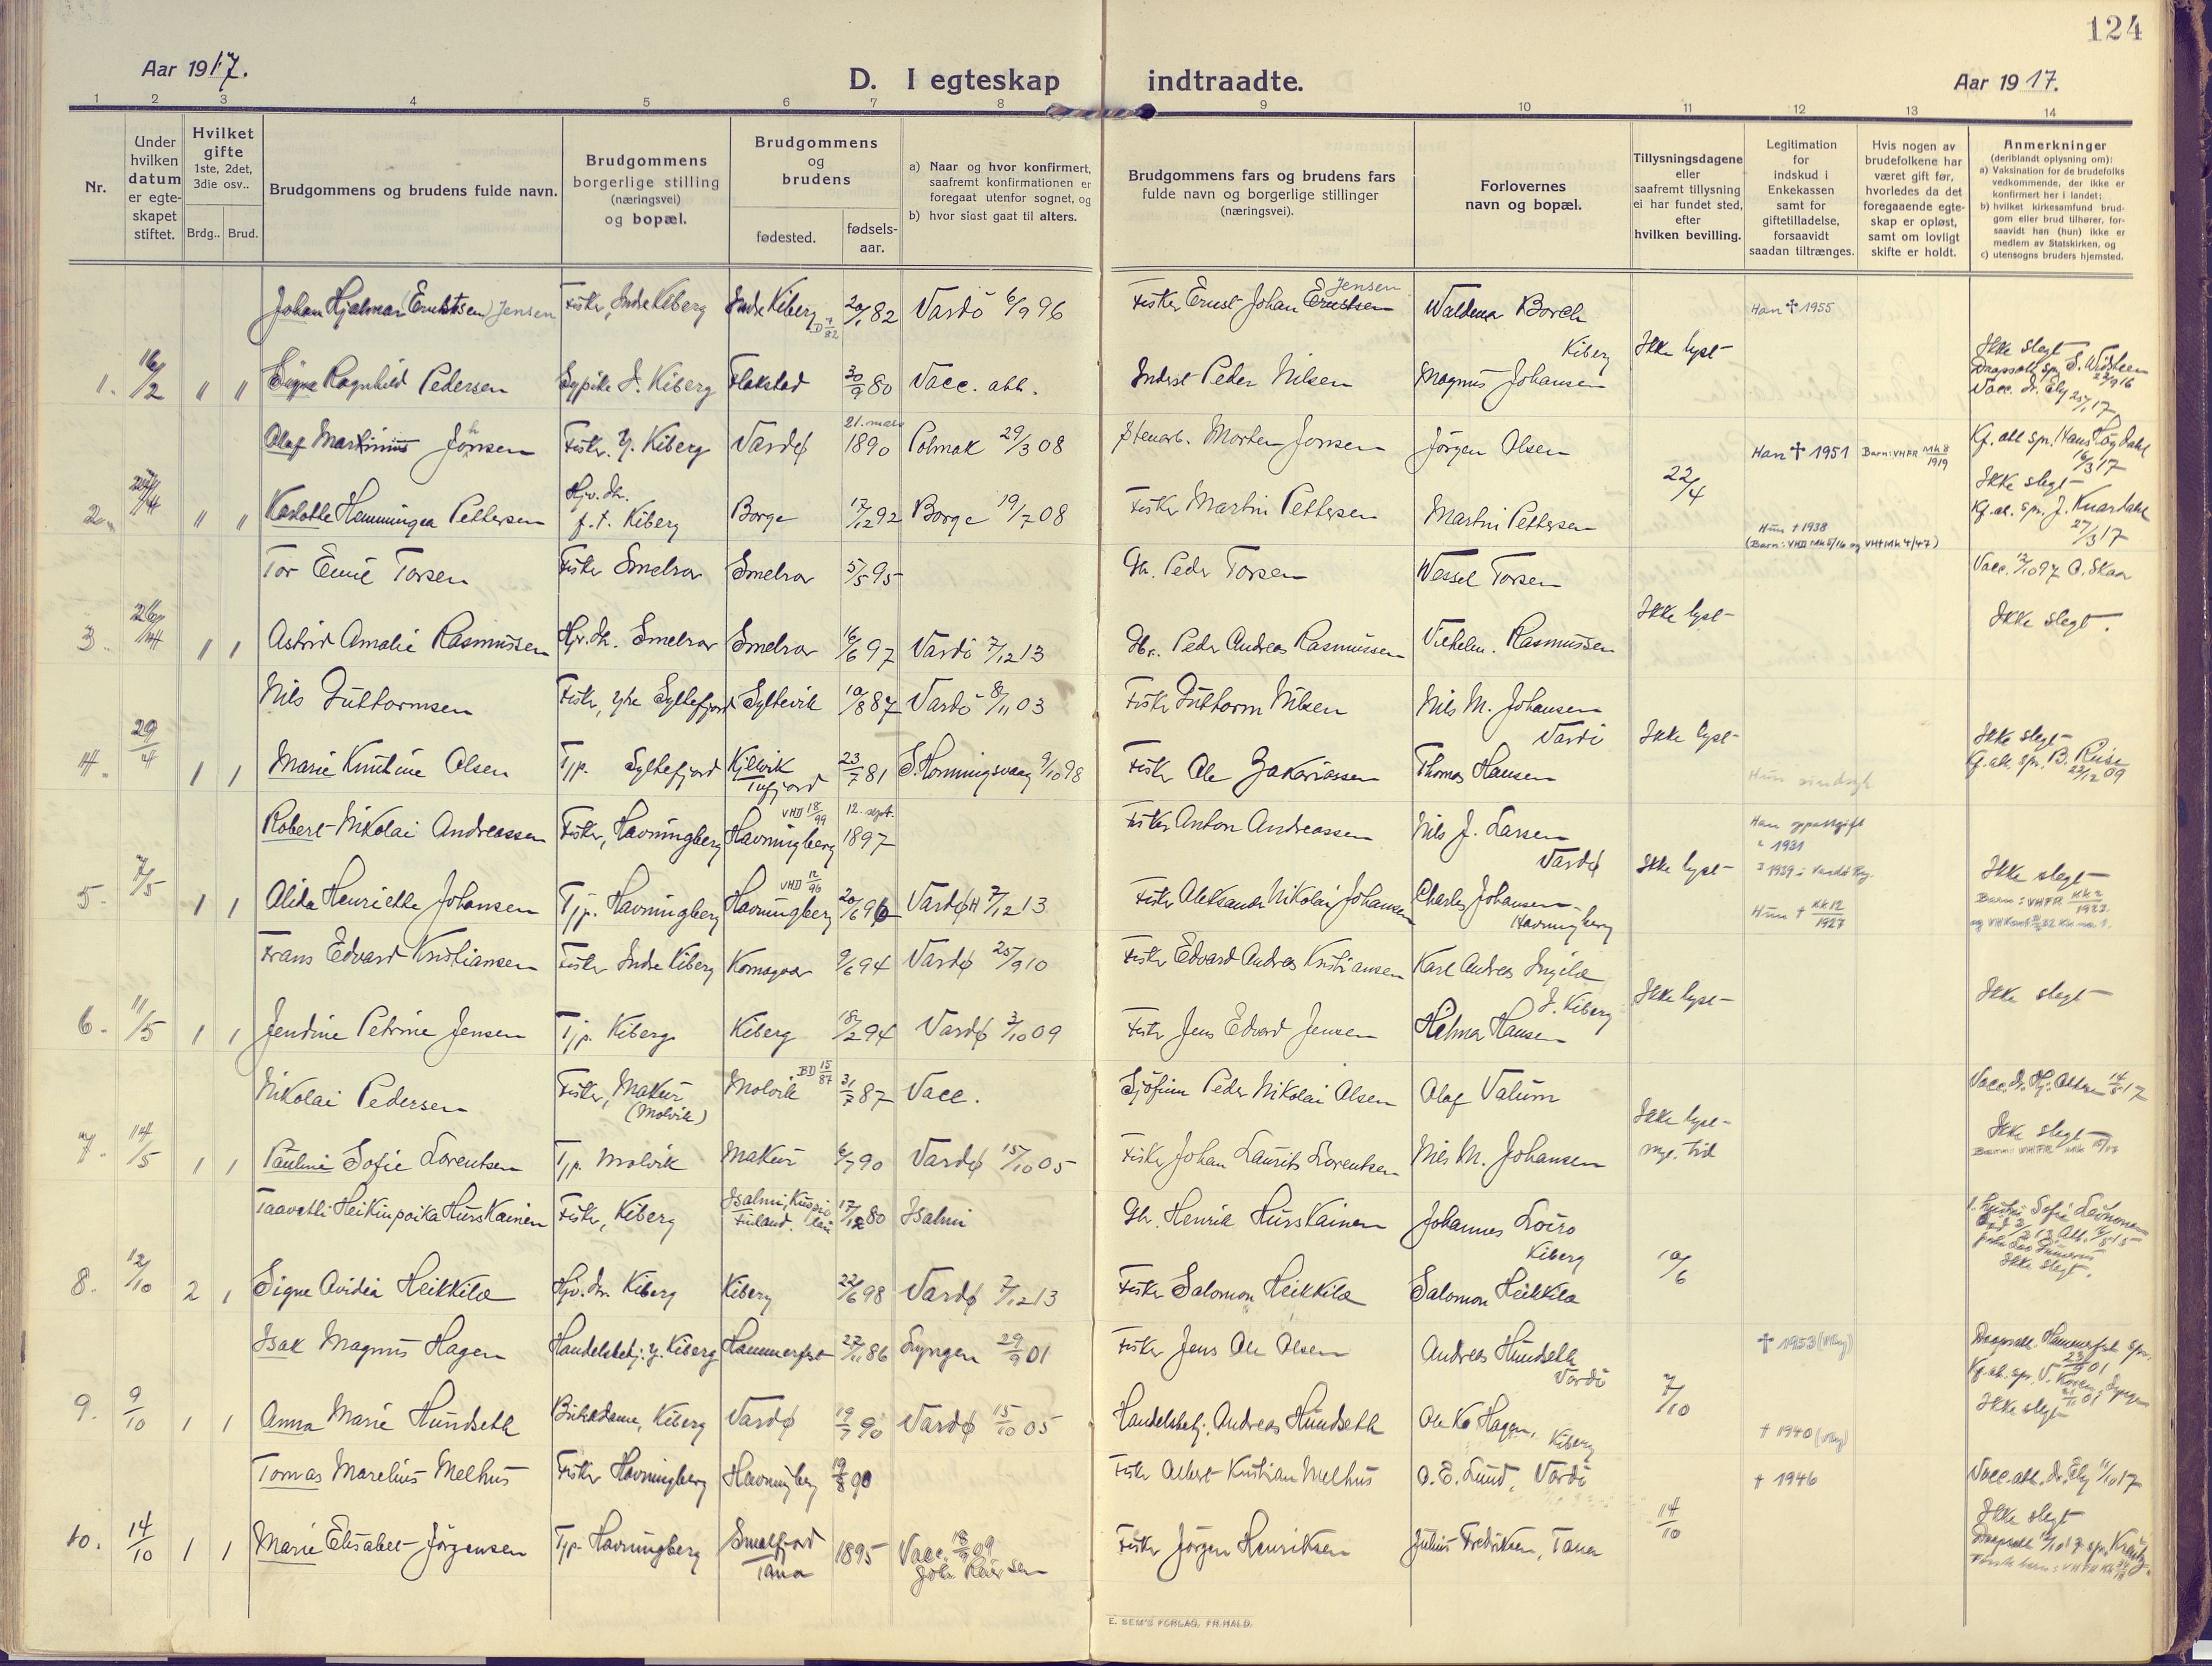 124
Aar 1917.
D. I egteskap indtraadte.
Aar 1917.
1 2 3 4 5 6 7 8 9 10 11 12 13 14
Nr.
Under hvilken datum er egteskapet stiftet.
Hvilket gifte 1ste, 2det, 3die osv..
Brdg.. Brud.
Brudgommens og brudens fulde navn.
Brudgommens borgerlige stilling (næringsvei) og bopæl.
Brudgommens og brudens
fødested.
fødsels-aar.
a) Naar og hvor konfirmert, saafremt konfirmationen er foregaat utenfor sognet, og
b) hvor sidst gaat til alters.
Brudgommens fars og brudens fars fulde navn og borgerlige stillinger (næringsvei).
Forlovernes navn og bopæl.
Tillysningsdagene eller saafremt tillysning ei har fundet sted, efter hvilken bevilling.
Legitimation for indskud i Enkekassen samt for giftetilladelse, forsaavidt saadan tiltrænges.
Hvis nogen av brudefolkene har været gift før, hvorledes da det foregaaende egteskap er opløst, samt om lovligt skifte er holdt.
Anmerkninger (deriblandt oplysning om):
a) Vaksination for de brudefolks vedkommende, der ikke er konfirmert her i landet;
b) hvilket kirkesamfund brudgom eller brud tilhører, forsaavidt han (hun) ikke er medlem av Statskirken, og
c) utensogns bruders hjemsted.
Johan Hjalmar (Ernstsen) Jensen Fisker, Indre Kiberg Indre Kiberg 20/1 82 Vardö 6/9 96 Fisker Ernst Johan Ernstsen Jensen Waldemar Borch Kiberg Han ✝ 1955
1. 16/2 " " Signe Ragnhild Pedersen Sypike I. Kiberg Flakstad 30/9 80 Vacc. att. Inderst Peder Nilsen Magnus Johansen Ikke lyst Ikke slegt
Olaf Martinius Johnsen Fisker. Y. Kiberg Vardø 21. mars 1890 Polmak 29/3 08 Morten Jonsen Jörgen Olsen Han ✝ 1951 Barn: VHFR Mk 8 1919 16/3 17
2. " " Hemmingea Pettersen Hjv. dh. f. t. Kiberg Borge 17/12 92 Borge 19/7 08 Fisker Martin Pettersen Martin Pettersen 22/4 Hun † 1938 Ikke slegt 27/3 17
Tor Emil Torsen Fisker Smelror Smelror 5/5 95 Gb. Peder Torsen Wessel Torsen
3. 26/4 1 1 Astrid Amalie Rasmussen Hjv. dh. Smelror Smelror 16/6 97 Vardö 7/12 13 Gbr. Peder Andreas Rasmussen Vilhelm. Rasmussen Ikke lyst Ikke slegt.
Nils Guttormsen Fisker, ytre Syltefjord Syltevik 10/8 87 Vardö 8/11 03 Fisker Guttorm Nilsen Nils M. Johansen Vardö
4. 29/4 1 1 Marie Knutine Olsen Tjp. Syltefjord Kjelvik Tufjord 23/7 81 S. Honningsvaag 9/10 98 Fisker Ole Zakariassen Thomas Hansen Ikke lyst Ikke slegt
Robert Nikolai Andreassen Fisker, Havningberg Havningberg VHD 18/99 12. sept. 1897 Fisker Anton Andreassen Nils J. Larsen Vardø 1931
5. 7/5 1 1 Alida Henriette Johansen Tjp. Havningberg Havningberg VHD 12/96 20/6 96 Vardø 7/12 13 Fisker Aleksander Nikolai Johansen Charles Johansen Havningberg Ikke lyst Hun † Kk 12 1927 Ikke slegt
Frans Edvard Kristiansen Fisker Indre Kiberg Komagvær 9/6 94 Vardø 25/9 10 Fisker Edvard Andreas Kristiansen Karl Andreas Ingilæ I. Kiberg
6. 11/5 1 1 Jendine Petrine Jensen Tjp. Kiberg Kiberg 18/2 94 Vardø 3/10 09 Fisker Jens Edvard Jensen Helmer Hansen Ikke lyst Ikke slegt
Nikolai Pedersen Fisker, Makur (Molvik) Molvik BD 15/87 31/7 87 Vacc. Peder Nikolai Olsen Olaf Valum
7. 14/5 1 1 Pauline Sofie Lorentsen Tjp. Molvik Makur 6/7 90 Vardø 15/10 05 Fisker Johan Laurits Lorentsen Nils M. Johansen Ikke lyst Ikke slegt
Taavetti Heikinpoika Hurskainen Fisker, Kiberg Isalmi, Kuopio Finland. 17/12 80 Isalmi Gb. Henrik Hurskainen Johannes Loiro Kiberg
8. 12/10 2 1 Signe Ovidia Heikkila Hjv. dr. Kiberg Kiberg 22/6 98 Vardø 7/12 13 Fisker Salomon Heikkila Salomon Heikkila 10/6 Ikke slegt.
Isak Magnus Hagen Handelsbetj. y. Kiberg Hammerfest 27/11 86 Lyngen 29/9 01 Fisker Jens Ole Olsen Andreas Hundseth Vardö ✝ 1953
9. 9/10 1 1 Anna Marie Hundseth Butikdame, Kiberg Vardø 19/7 90 Vardø 15/10 05 Handelsbetj. Andreas Hundseth Ole K. Hagen, Kiberg 7/10 † 1940 Ikke slegt
Tomas Marelius Melhus Fisker Havningberg Havningberg 19/8 90 Fisker Albert Kristian Melhus O. E. Lund, Vardö † 1946 Vacc. att. dr. Ely 11/10 17
10. 14/10 1 1 Marie Elisabet Jörgensen Tjp. Havningberg Smalfjord Tana 1895 Vacc. 18/9 09 Fisker Jörgen Henriksen Julius Fredriksen, Tana 14/10 Ikke slegt
E. SEM'S FORLAG, FR.HALD.